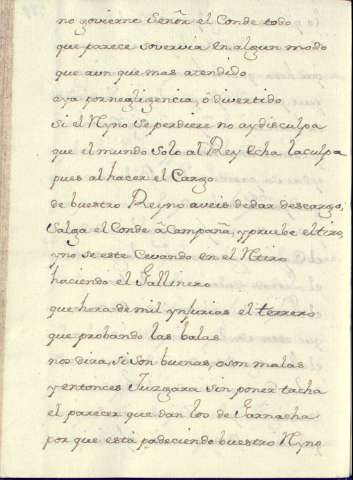 no govierne Señor el Conde todo
que parece sovervia en algun modo
que aun que mas atendido
aya por negligencia, ô divertido
si el Nyno se perdiere no ay disculpa
que el mundo solo al Rey echa la culpa
pues al hacer el Cargo
de buestro Reyno aveis de dar descargo,
Salga el Conde â Campaña, y pruebe el tiro,
y no se este Cevando en el Ntiro
haciendo el Gallinero
que hera de mil ynjurias el terrero
que probando las balas
nos dira, si son buenas, o son malas
y entonces Juzgara sin poner tacha
el parecer que dan los de Garnacha
por que está padeciendo buestro Nyno